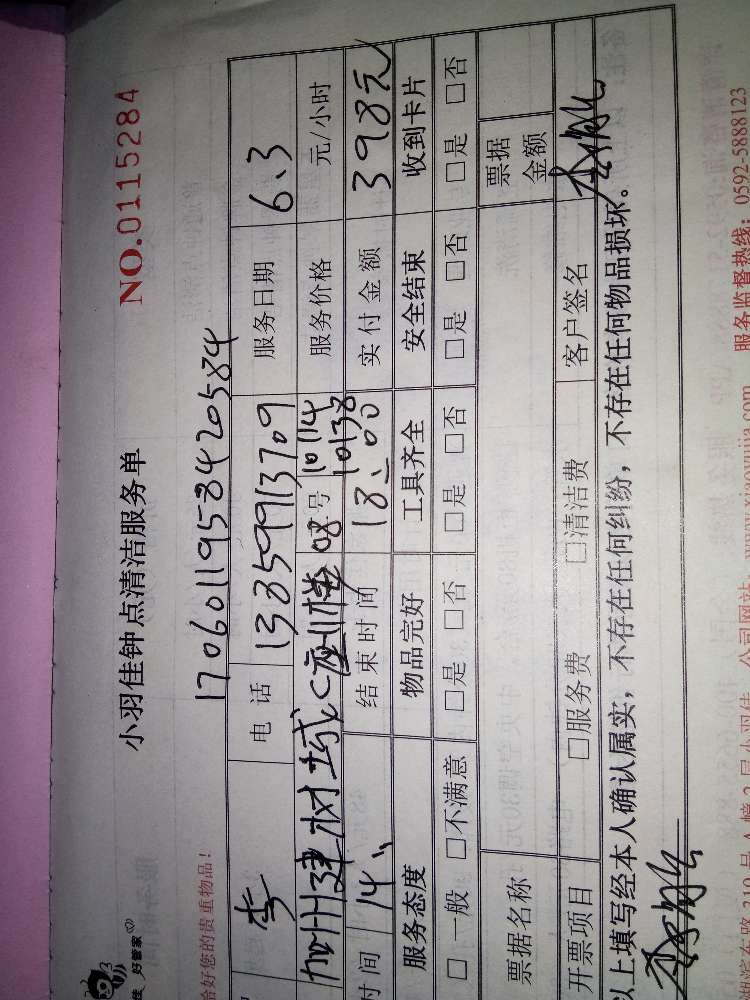 小羽佳钟点清洁服务单
NO.0115284
佳 好管家
给好您的贵重物品！
1706011958420584
李 电话 13859913709 服务日期 6、3
加州建材城C 11楼 08号 10114 10138 服务价格 元/小时
时间 14 结束时间 18:00 实付金额 398元
服务态度 物品完好 工具齐全 安全结束 收到卡片
□一般 □不满意 □是 □否 □是 □否 □是 □否 □是 □否
票据名称 票据金额
开票项目 □服务费 □清洁费 客户签名
以上填写经本人确认属实，不存在任何纠纷，不存在任何物品损坏。
湖滨东路319号 幢2层小羽佳 公司网站 www.xiaoyujia.com 服务监督热线：0592-5888123